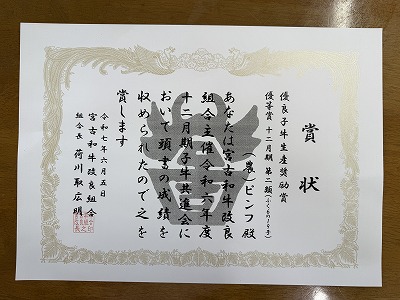 賞状
優良子牛生産奨励賞
優等賞 十二月期 第二類
(農)ビンフ殿
あなたは宮古和牛改良
組合主催令和六年度
十二月期子牛共進会に
おいて頭書の成績を
収められたので之を
賞します
令和七年六月五日
宮古和牛改良組合
組合長 荷川取広明